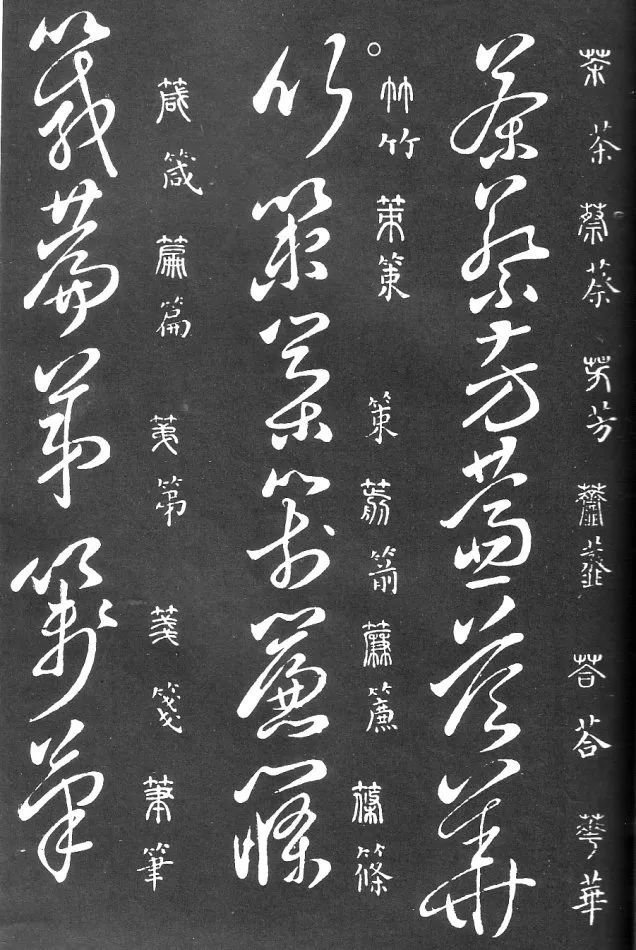 茶茶蔡蔡芳芳荅荅華華
茶蔡芳荅華
竹竹策策策箭箭簾簾篠篠
竹策策箭簾篠
箴箴篇篇第第箋箋筆筆
箴篇第箋筆